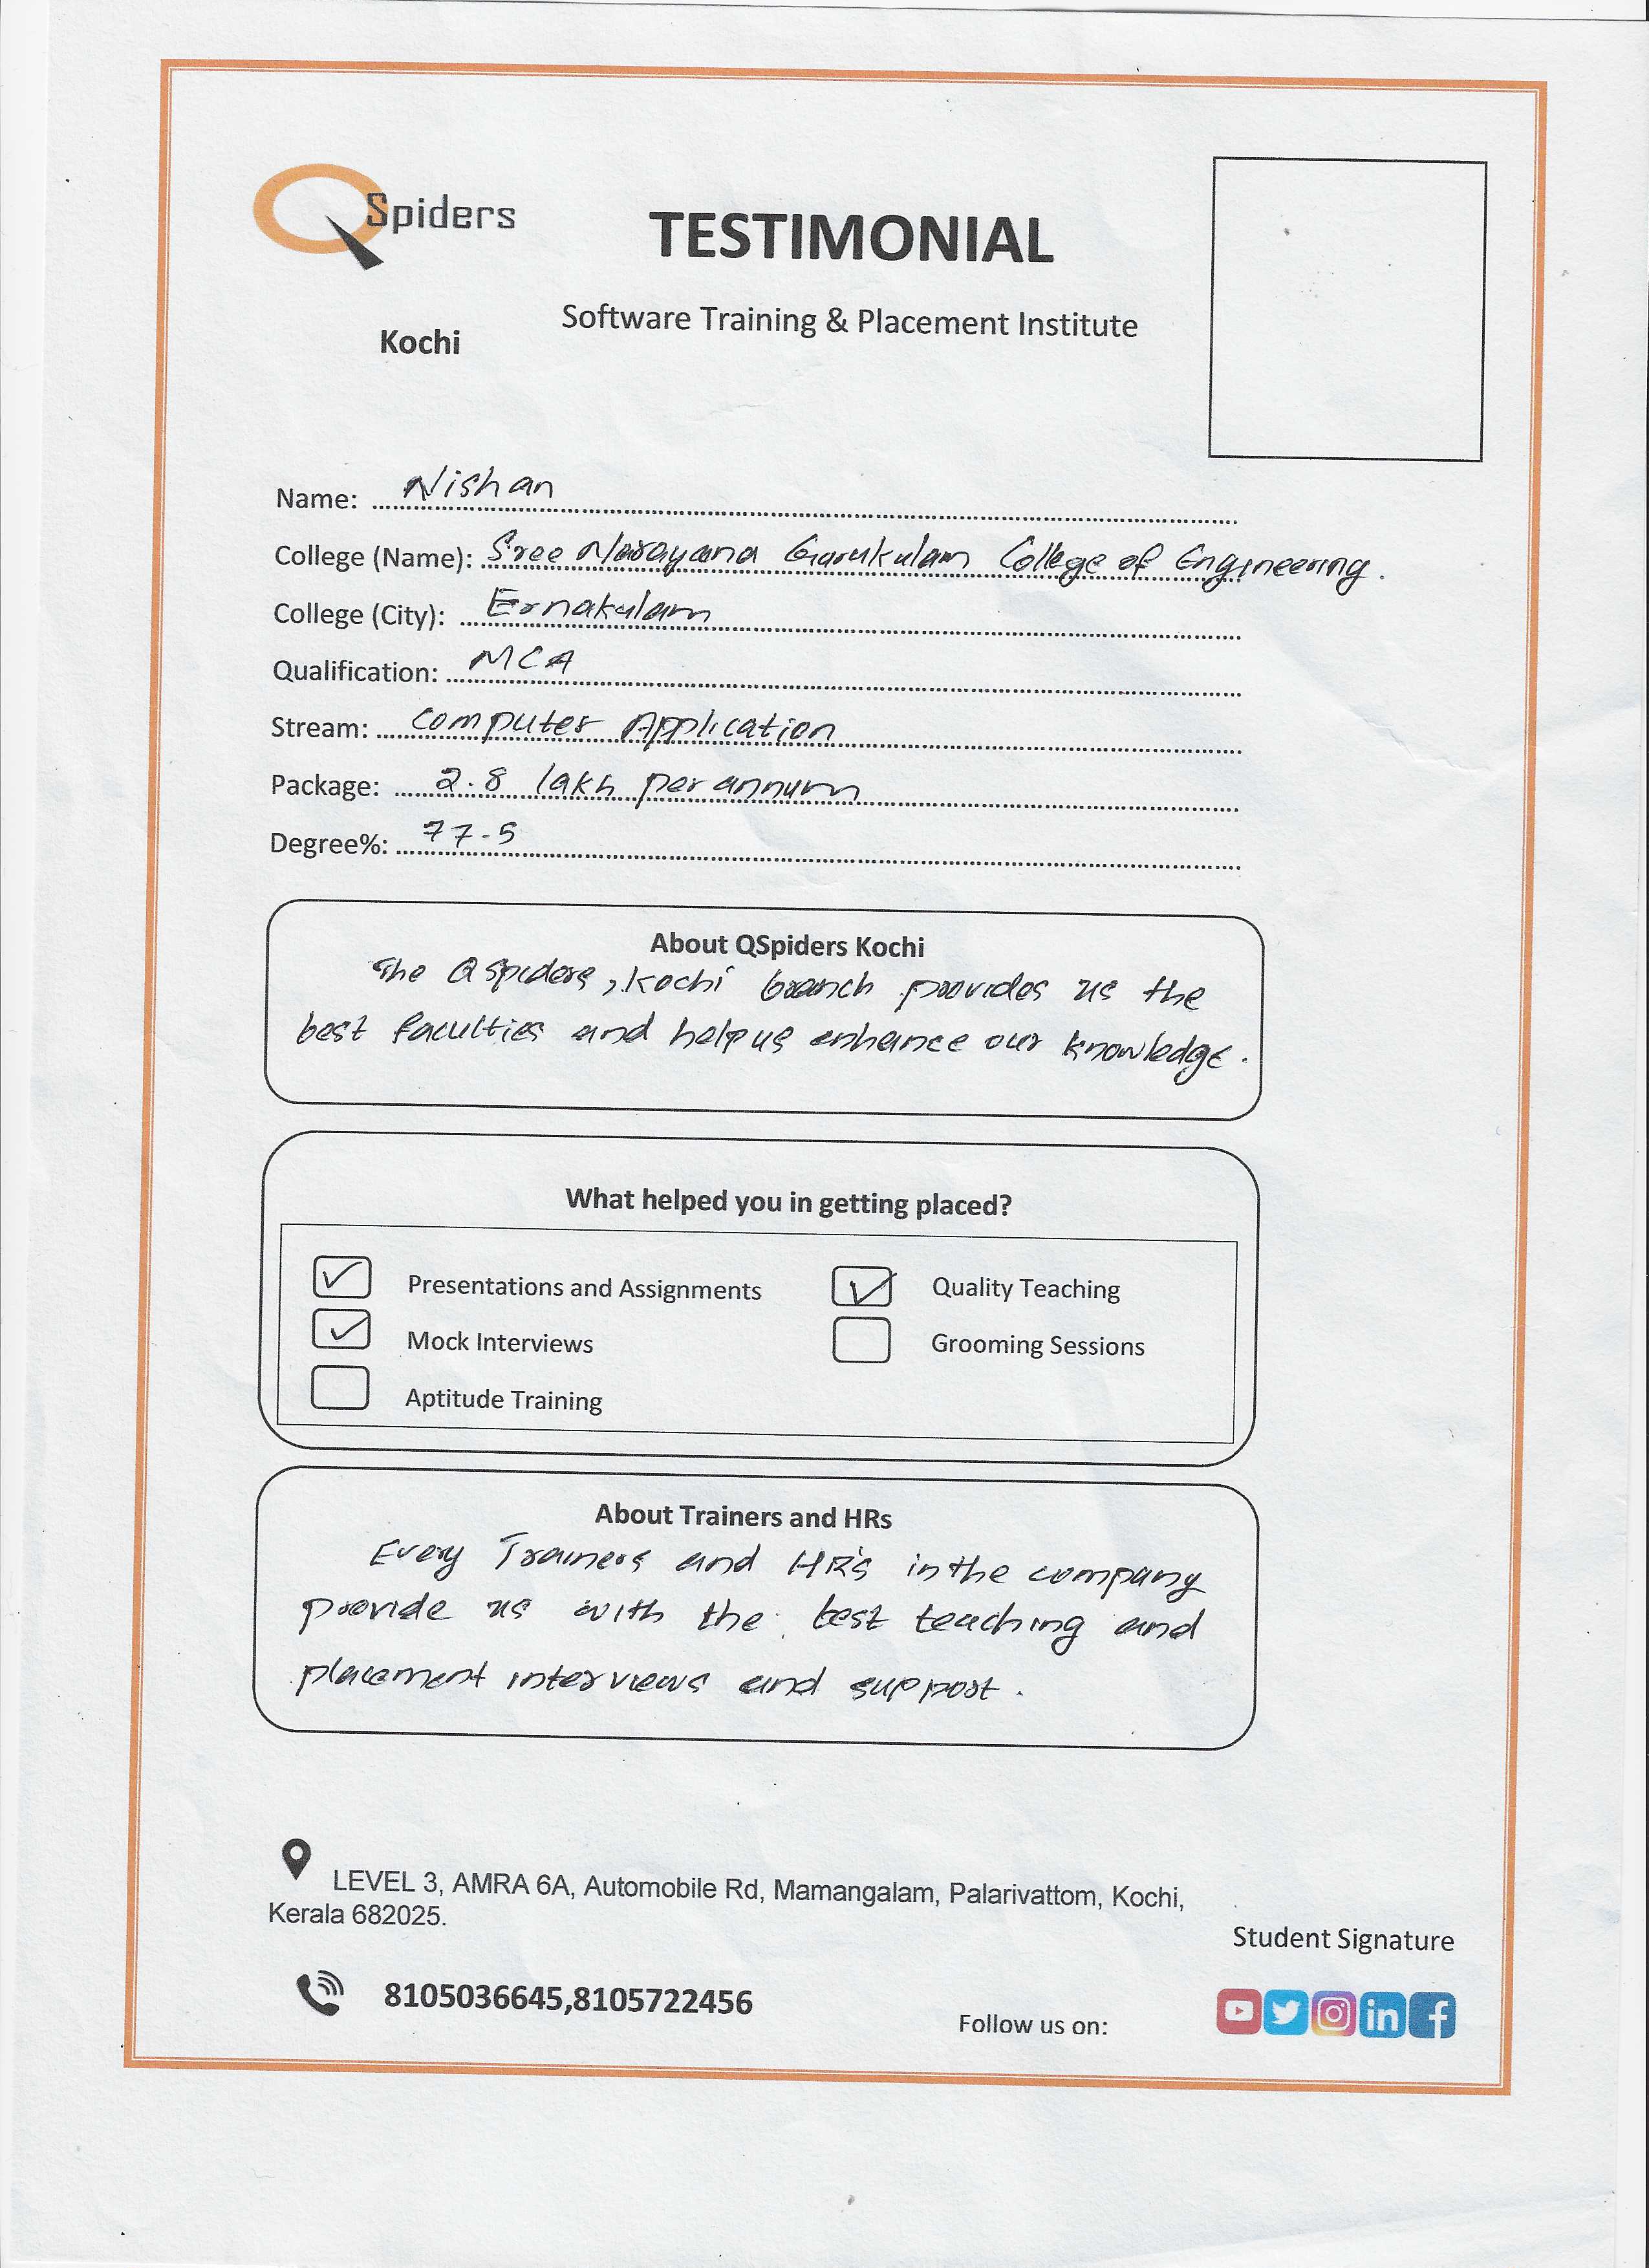 QSpiders
TESTIMONIAL
Software Training & Placement Institute
Kochi
Name: Nishan
College (Name): Sree Narayana Gurukulam College of Engineering.
College (City): Ernakulam
Qualification: MCA
Stream: Computer Application
Package: 2.8 lakh per annum
Degree%: 77.5
About QSpiders Kochi
The Qspiders, Kochi branch provides us the
best faculties and help us enhance our knowledge.
What helped you in getting placed?
Presentations and Assignments
Quality Teaching
Mock Interviews
Grooming Sessions
Aptitude Training
About Trainers and HRs
Every Trainers and HR's in the company
provide us with the best teaching and
placement interviews and support.
LEVEL 3, AMRA 6A, Automobile Rd, Mamangalam, Palarivattom, Kochi,
Kerala 682025.
Student Signature
8105036645,8105722456
Follow us on: